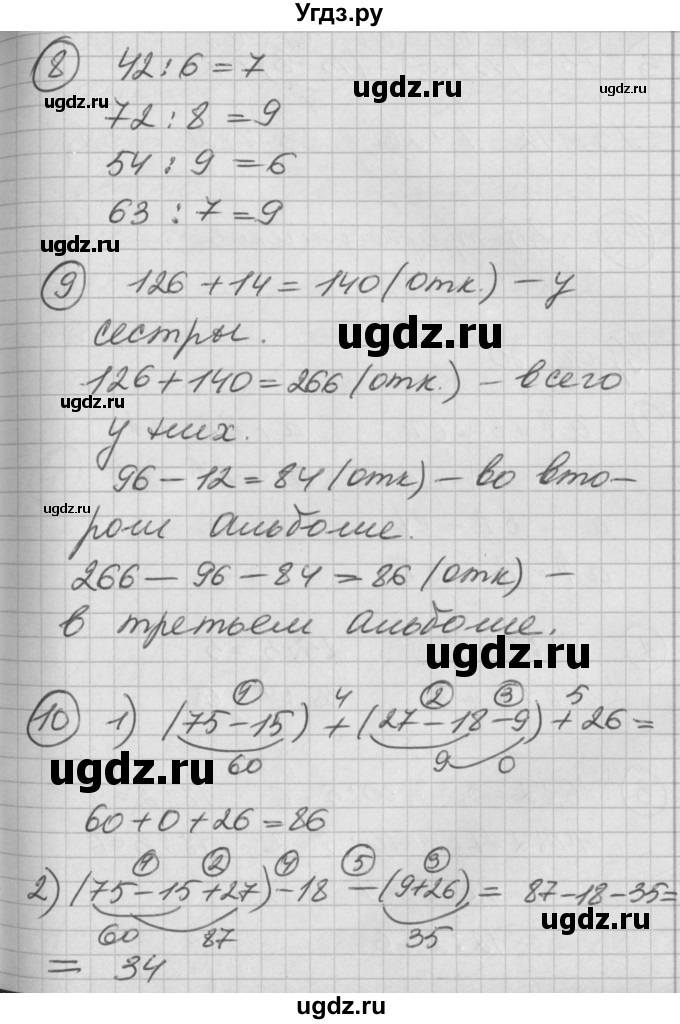 Угдз.ру
8 42 : 6 = 7
ugdz.ru ugdz.ru ugdz.ru
72 : 8 = 9
54 : 9 = 6
63 : 7 = 9
ugdz.ru
9 126 + 14 = 140 (отк.) – у
сестры.
ugdz.ru
126 + 140 = 266 (отк.) – всего
ugdz.ru
у них.
96 – 12 = 84 (отк) – во вто–
ugdz.ru
ром альбоме.
266 – 96 – 84 = 86 (отк) –
в третьем альбоме.
ugdz.ru
1 4 2 3 5
10 1) (75 – 15) + (27 – 18 – 9) + 26 =
60 9 0
ugdz.ru
60 + 0 + 26 = 86
1 2 4 5 3
2) (75 – 15 + 27) – 18 – (9 + 26) = 87 – 18 – 35 =
ugdz.ru
60 87 35
= 34
ugdz.ru